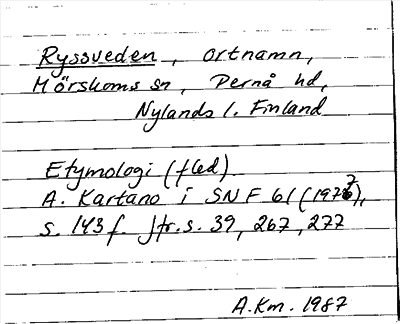 Ryssveden, ortnamn,
Mörskoms sn, Pernå hd,
Nylands l. Finland
Etymologi (fled)
A. Kartano i SNF 61 (1976),
7
s. 143 f. Jfr. s. 39, 267, 277
A.Km. 1987